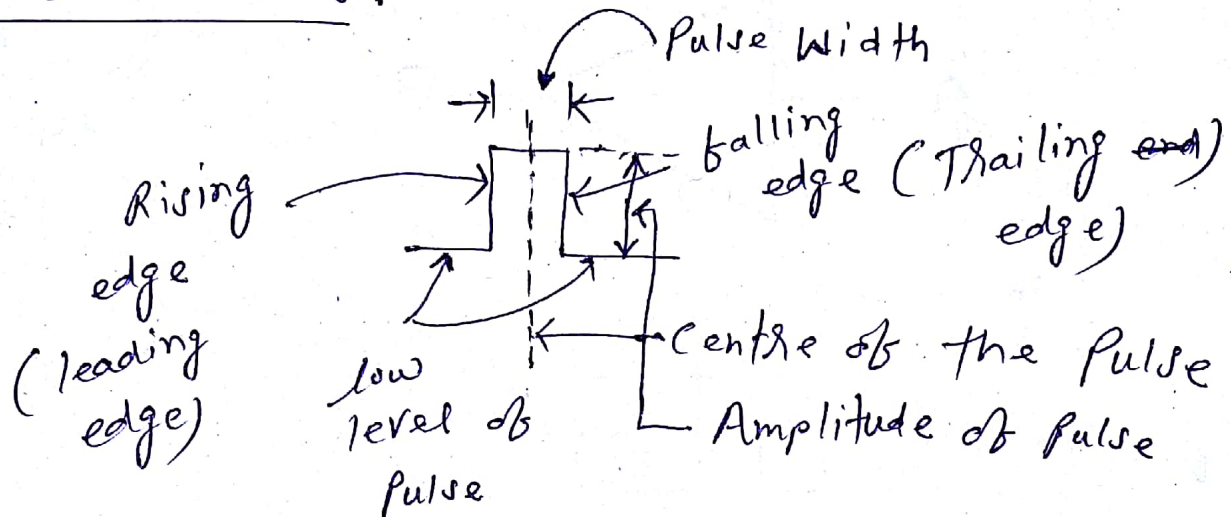 Pulse Width
falling
edge (Trailing end)
edge)
Rising
edge
(leading
edge)
low
level of
Pulse
Centre of the Pulse
Amplitude of Pulse